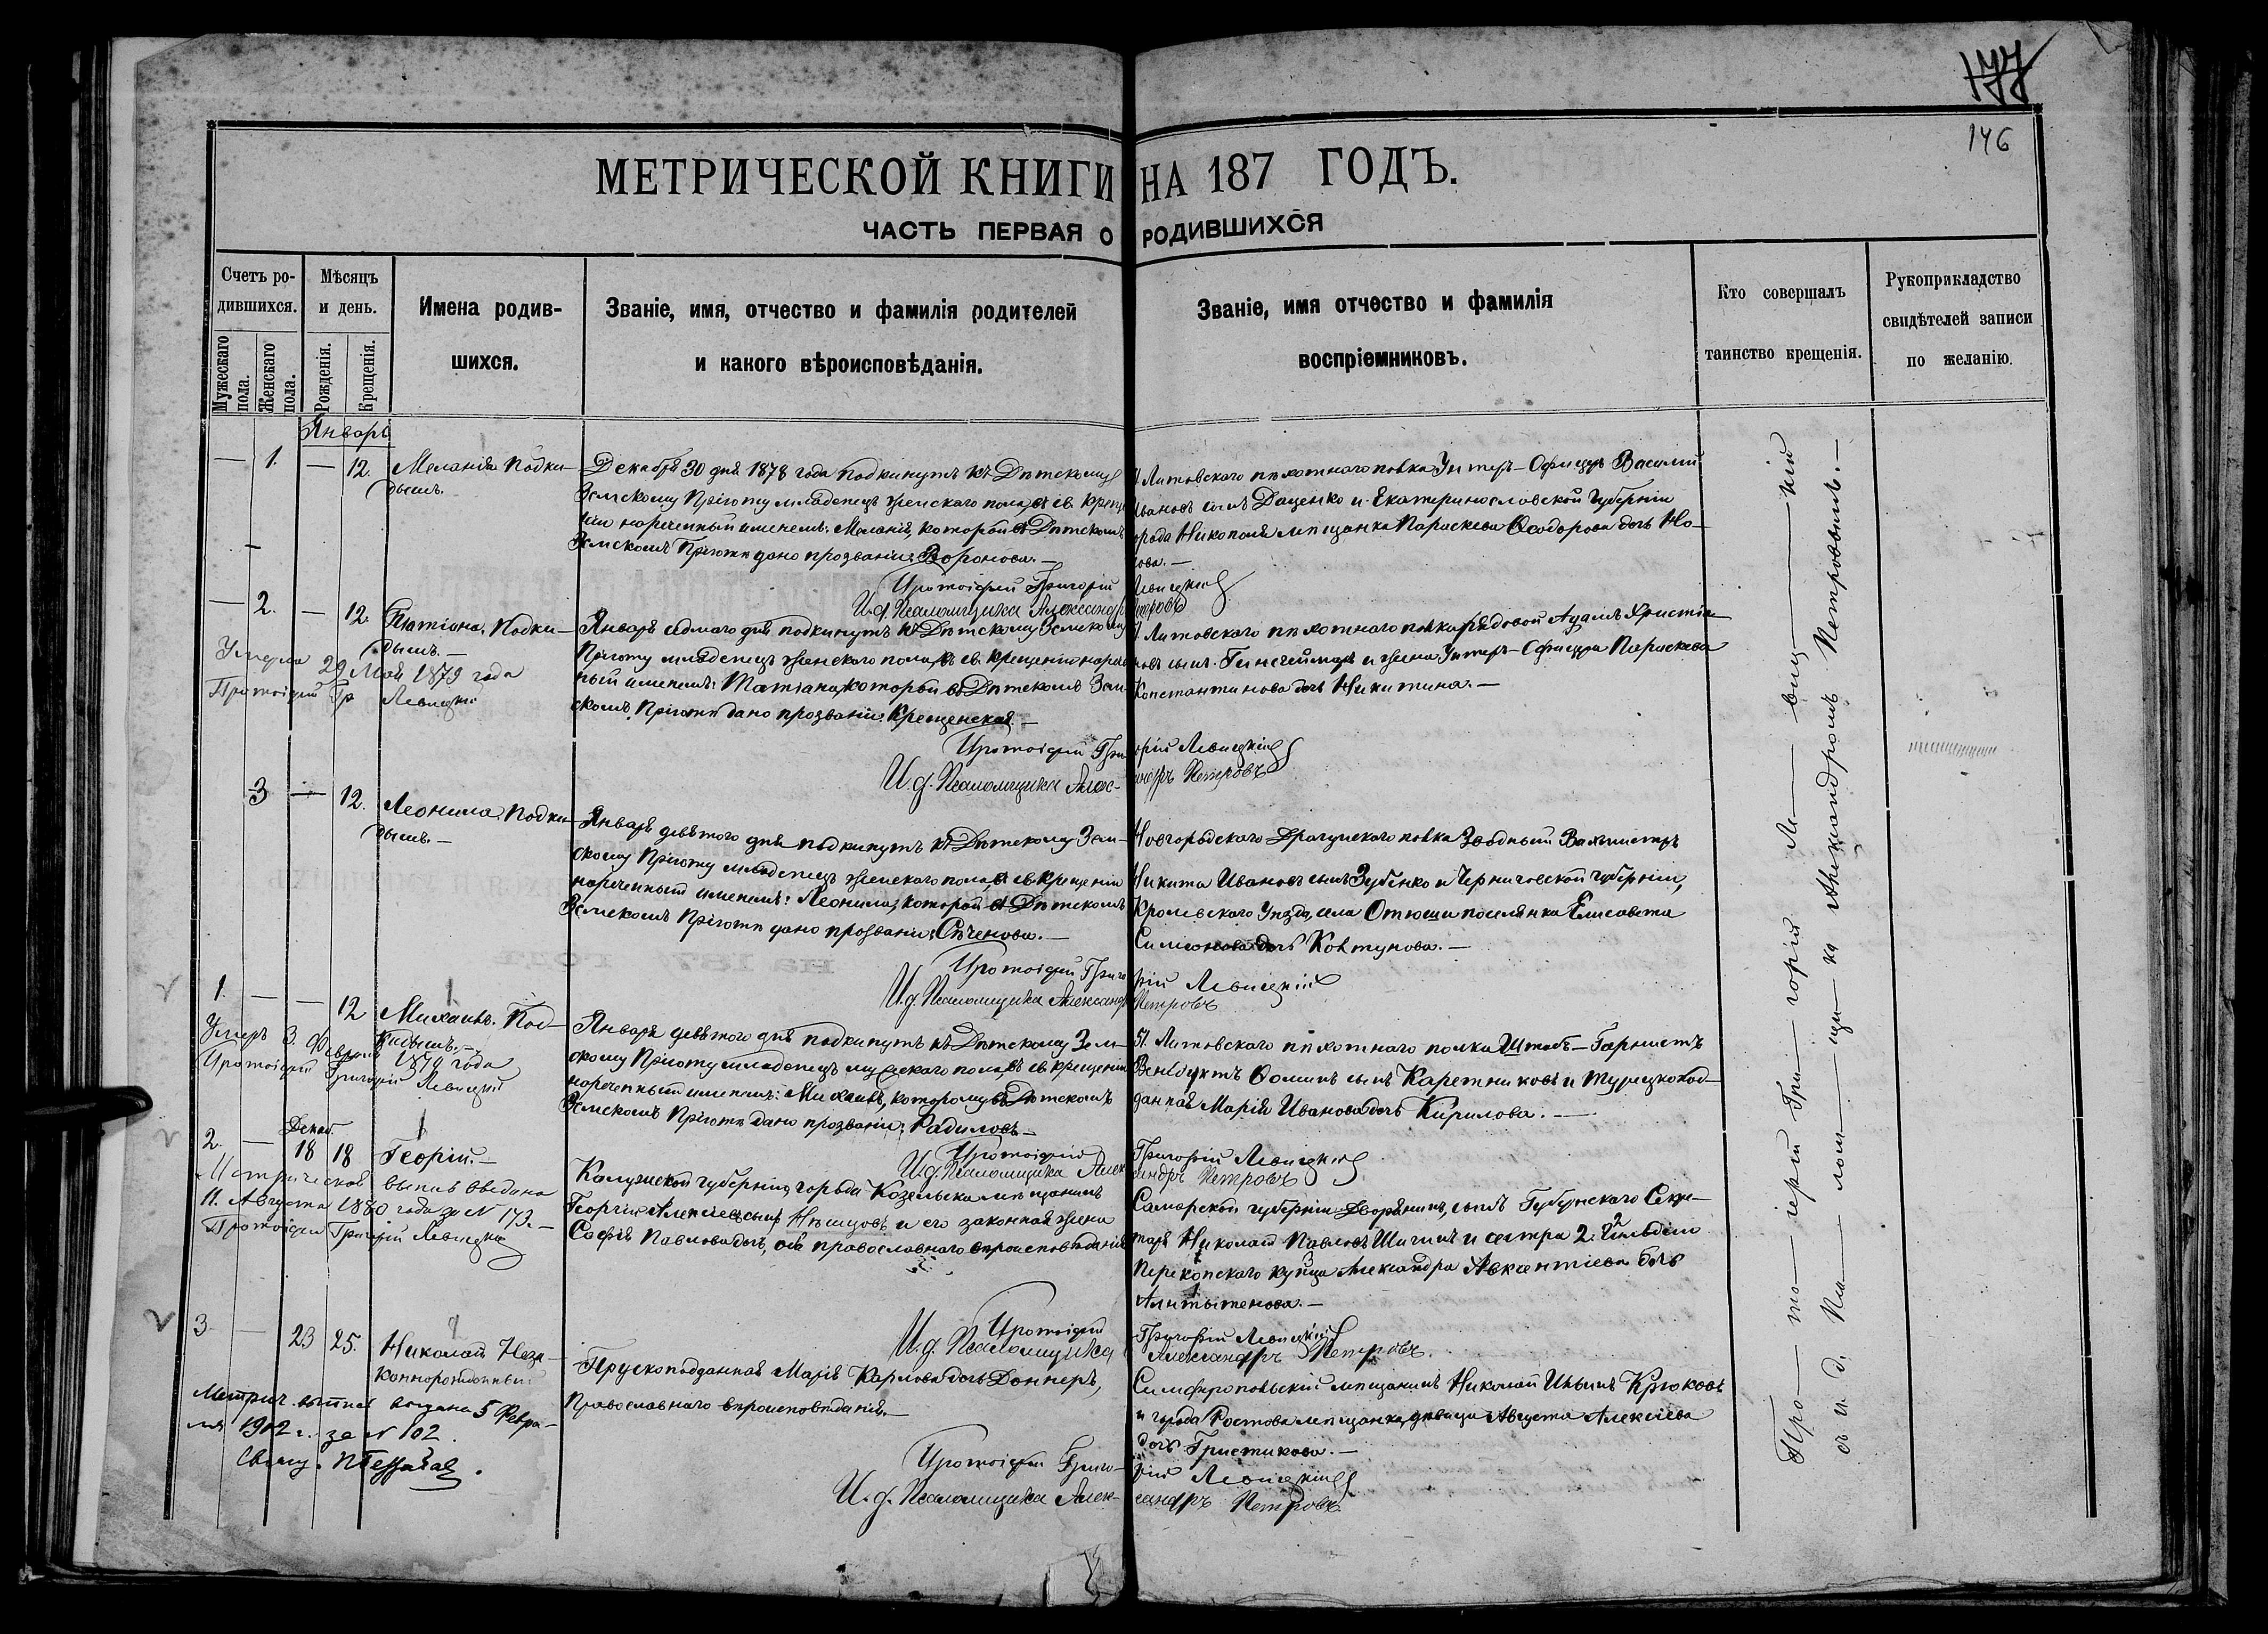 177
146
МЕТРИЧЕСКОЙ КНИГИ НА 187 ГОДЪ.
ЧАСТЬ ПЕРВАЯ О РОДИВШИХСЯ
Счетъ ро-
дившихся.
Мужескаго пола.
Женскаго пола.
Мѣсяцъ
и день.
Рожденія.
Крещенія.
Имена родив-
шихся.
Званіе, имя, отчество и фамилія родителей
и какого вѣроисповѣданія.
Званіе, имя отчество и фамилія
воспріемниковъ.
Кто совершалъ
таинство крещенія.
Рукоприкладство
свидѣтелей записи
по желанію.
Январь
— 1. — 12.
Меланія Подки-
дышъ.
Декабря 30 дня 1878 года подкинутъ къ Дѣтскому
Земскому Пріюту младенецъ женскаго пола, въ св. Креще
ніи нареченный именемъ: Меланія, которой въ Дѣтскомъ
Земскомъ Пріютѣ дано прозваніе: Воронова. —
Литовскаго пѣхотнаго полка Унтеръ-Офицеръ Василій
Ивановъ сынъ Даценко и Екатеринославской Губерніи
города Никополя мѣщанка Параскева Ѳеодорова дочь Но-
кова. —
Протоіерей Григорій Левицкій
И. д. Псаломщика Александръ Петровъ
— 2. — 12.
Татіана. Подки-
дышъ. —
Умерла 29 Мая 1879 года
Протоіерей Гр Левицкій
Января седмаго дня подкинутъ къ Дѣтскому Земскому
Пріюту младенецъ женскаго пола, въ св. Крещеніи нарече
ный именемъ: Татіана, которой въ Дѣтскомъ Зем-
скомъ Пріютѣ дано прозваніе: Крещенская. —
Литовскаго пѣхотнаго полка рядовой Адамъ Христіа
новъ сынъ и жена Унтеръ-Офицера Параскева
Константинова дочь Никитина. —
Протоіерей Григорій Левицкій
И. д. Псаломщика Александръ Петровъ
3 — 12.
Леонила. Подки-
дышъ. —
Января девятаго дня подкинутъ къ Дѣтскому Зем-
скому Пріюту младенецъ женскаго пола, въ св. Крещеніи
нареченный именемъ: Леонила, которой въ Дѣтскомъ
Земскомъ Пріютѣ дано прозваніе: Сѣченова. —
Новгородскаго Драгунскаго полка Взводный Вахмистръ
Никита Ивановъ сынъ Зубенко и Черниговской губерніи,
Кролевскаго Уѣзда, села Отюши поселянка Елисавета
Симеонова дочь Ковтунова. —
Протоіерей Григорій Левицкій
И. д. Псаломщика Александръ Петровъ
1. — — 12
Михаилъ. Под-
кидышъ. —
Умеръ 3. Февраля 1879 года
Протоіерей Григорій Левицкій
Января девятаго дня подкинутъ къ Дѣтскому Зем-
скому Пріюту младенецъ мужескаго пола, въ св. крещеніи
нареченный именемъ: Михаилъ, которому въ Дѣтскомъ
Земскомъ Пріютѣ дано прозваніе: Радиловъ. —
51. Литовскаго пѣхотнаго полка Штабъ-Горнистъ
Венедиктъ Ѳоминъ сынъ Каретниковъ и Турецкопод-
данная Марія Иванова дочь Кирилова. —
Протоіерей Григорій Левицкій
И. д. Псаломщика Александръ Петровъ
Декаб.
2. — 18 18
Георгій. —
Метрическая выпись выдана
11. Августа 1880 года за № 173. —
Протоіерей Григорій Левицкій
Калужской губерніи, города Козельска мѣщанинъ
Георгій Алексіевъ сынъ Нѣмцовъ и его законная жена
Софія Павлова дочь, оба православнаго вѣроисповѣданія
Самарской губерніи Дворянинъ, сынъ Губернскаго Секре-
таря Николай Павловъ Шигинъ и сестра 2. й Гильдіи
Перекопскаго купца Александра Авксентіева дочь
Протоіерей Григорій Левицкій
И. д. Псаломщика Александръ Петровъ.
3 — 23 25.
Николай Неза-
коннорожденный
Метрич. выпись выдана 5 Февра-
ля 1902 г. за № 102.
Свящ.
Прускоподданная Марія Карлова дочь Доннеръ,
Православнаго вѣроисповѣданія. —
Симферопольскій мѣщанинъ Николай Ильинъ Крюковъ
и города Ростова мѣщанка, девица Августа Алексіева
дочь Гристикова. —
Протоіерей Григорій Левицкій
И. д. Псаломщика Александръ Петровъ
Про — то — іерей Гри — горій Ле — виц — кій
съ и. д. Пса — лом — щи — ка Александромъ Петровымъ. —